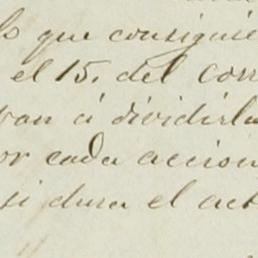 ls que consiguie
el 15. del corr
van á dividirla
or cada accion
si dura el act